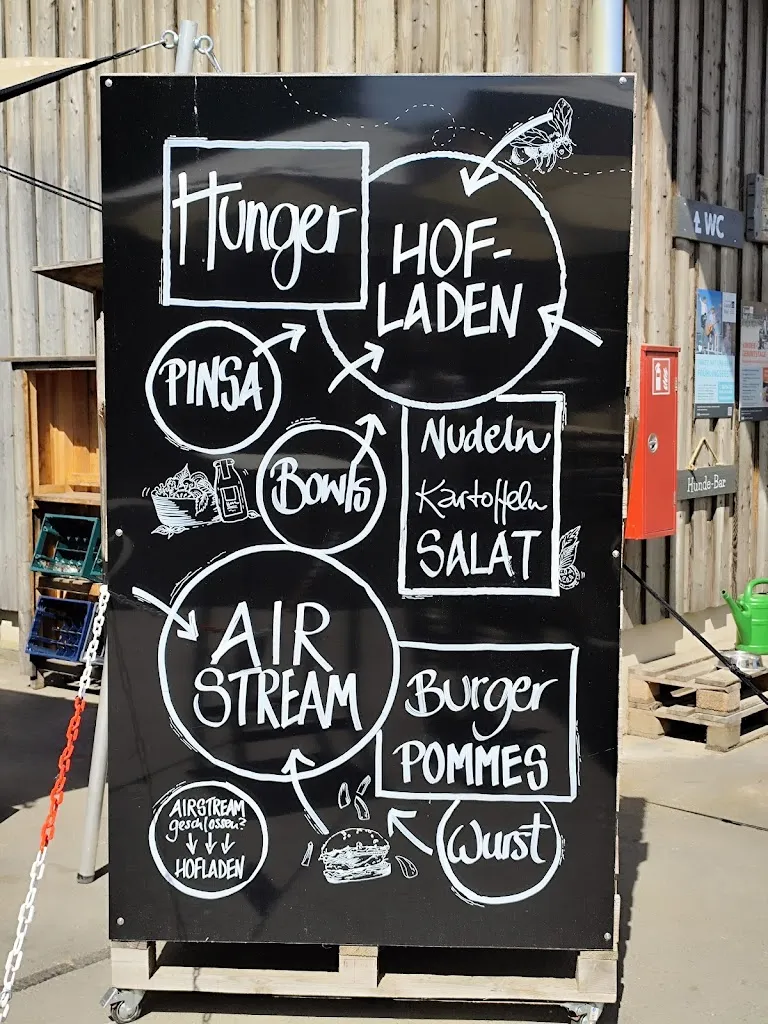 Hunger
HOF-
LADEN
PINSA
Bowls
Nudeln
Kartoffeln
SALAT
AIR
STREAM
Burger
POMMES
AIRSTREAM
geschlossen?
HOFLADEN
Wurst
WC
Hunde-Bar